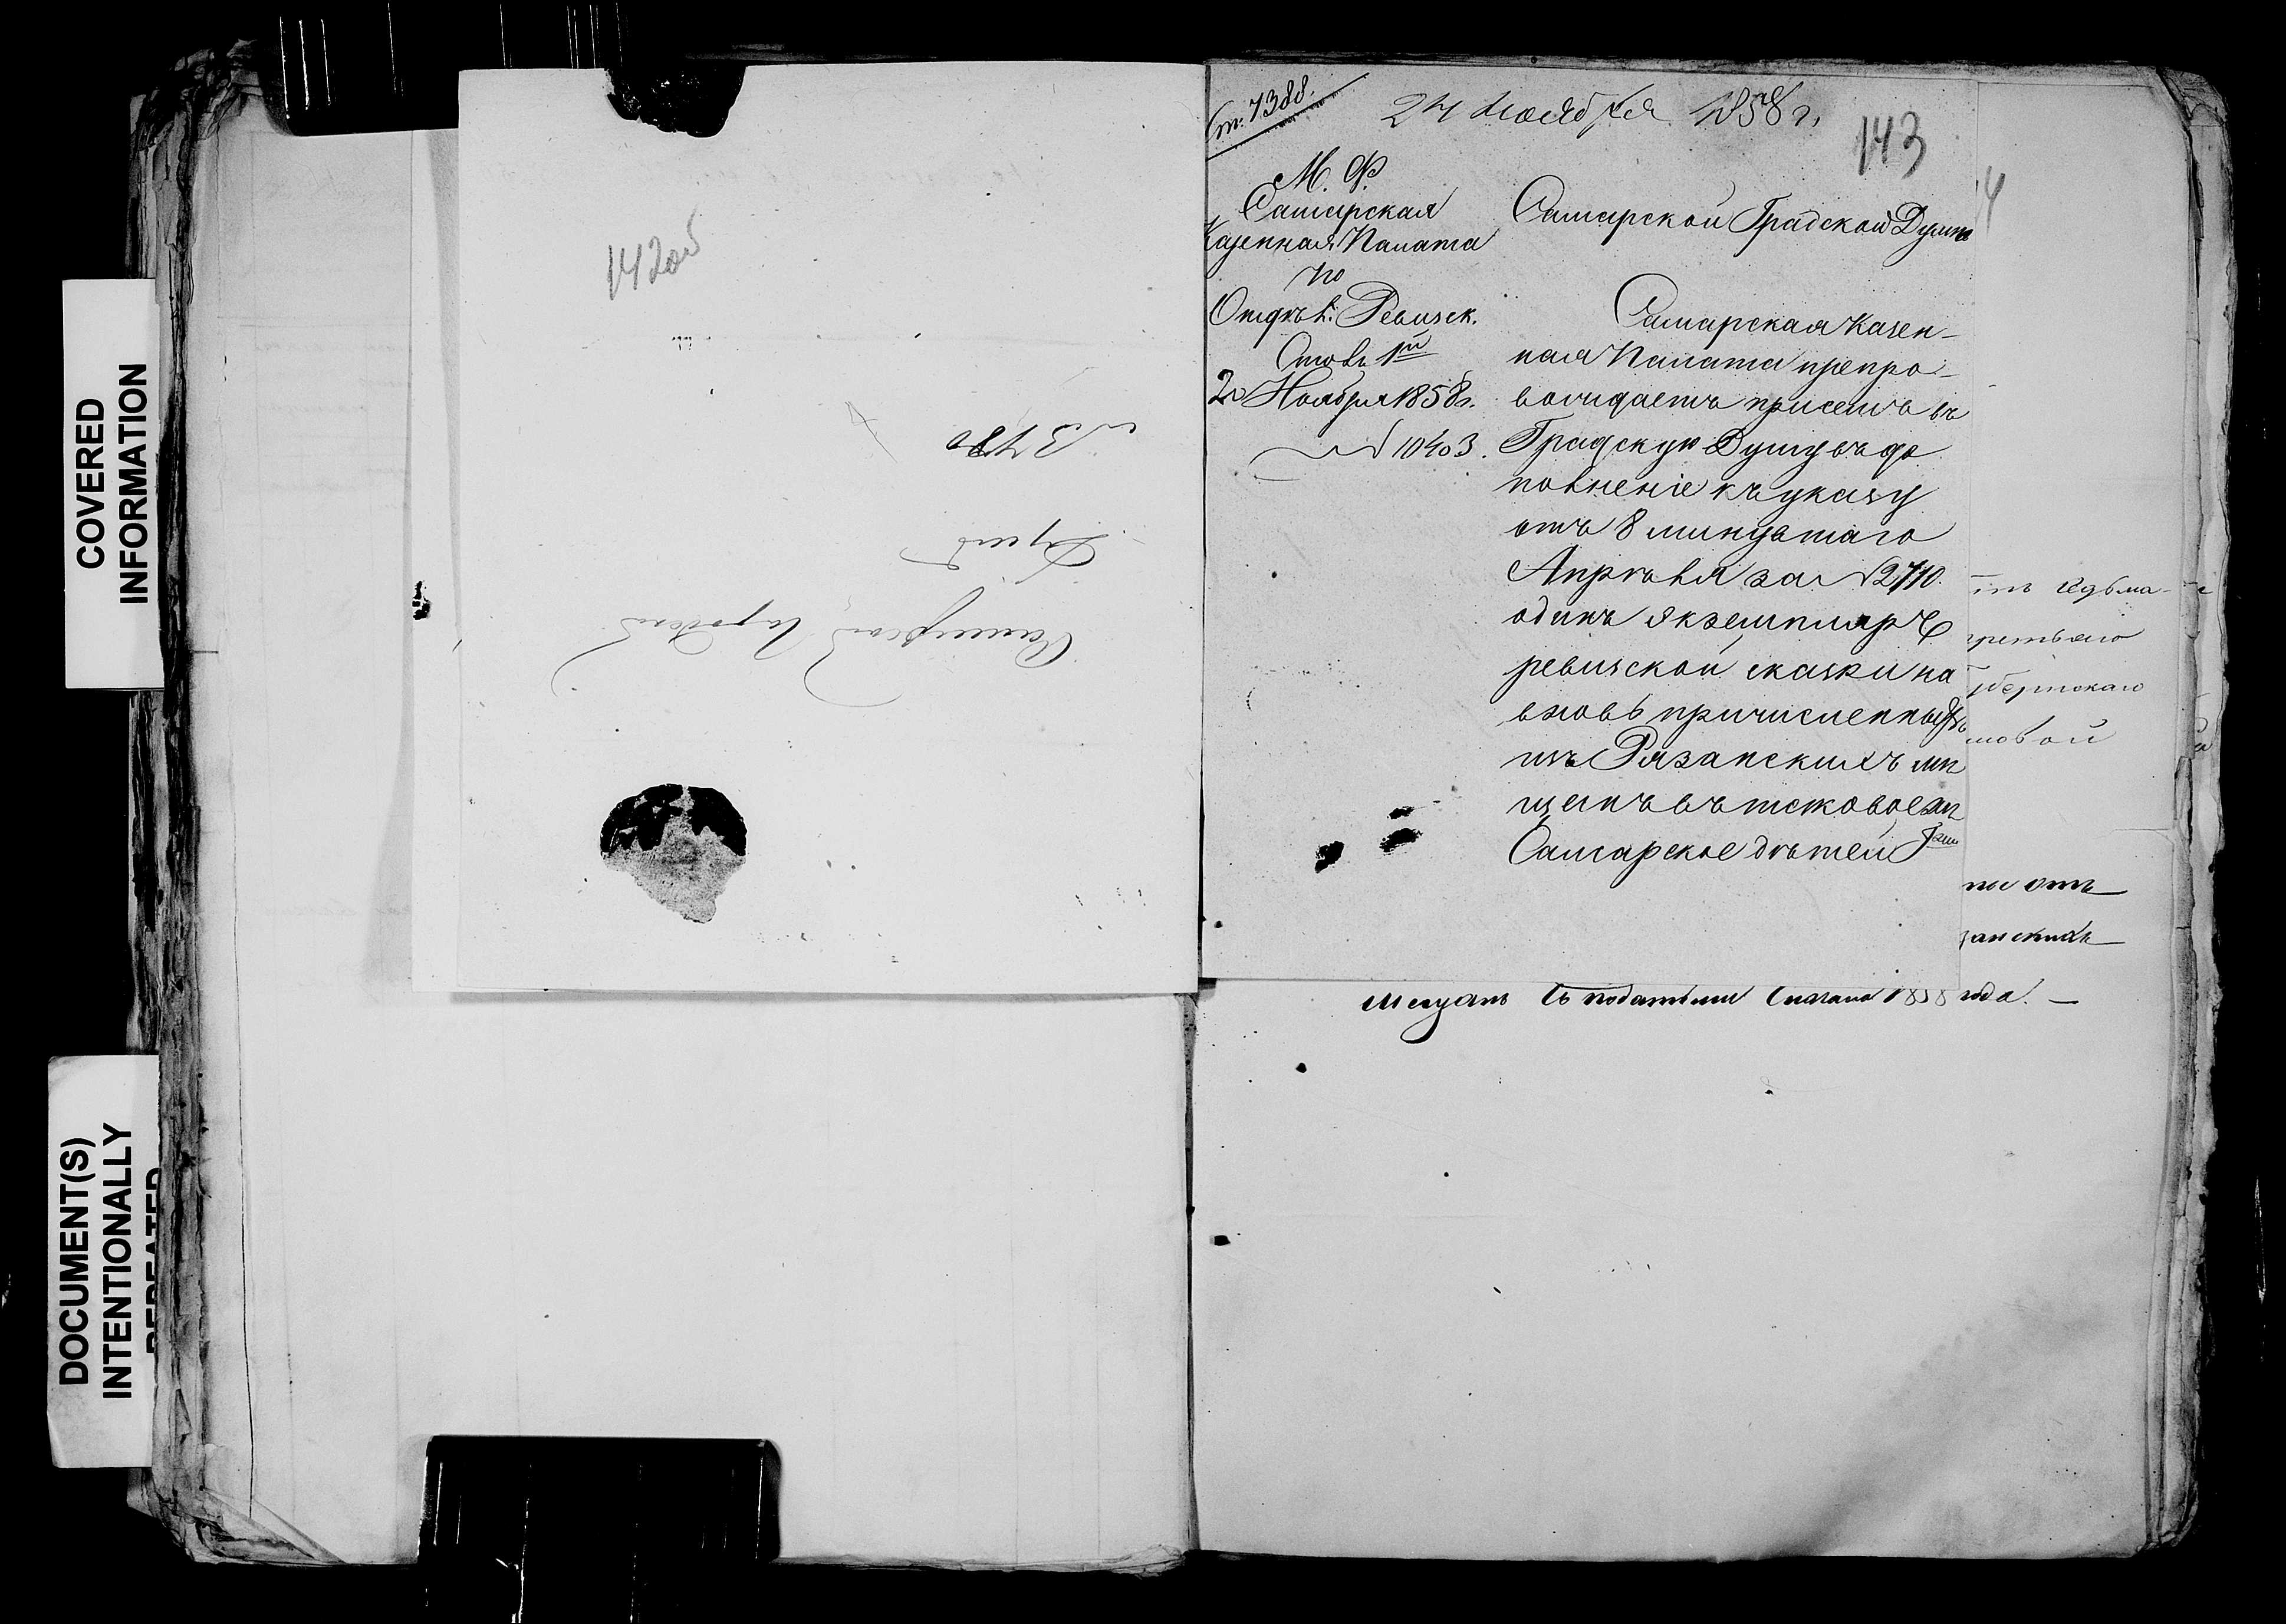 COVERED
INFORMATION
DOCUMENT(S)
INTENTIONALLY
REPEATED
142об
Самарской Градской
Думѣ
№ 3480
вх. 7388.
24 Ноября 1858 г.
143
М. Ф.
Самарская
Казенная Палата
по
Отдѣл. Ревизск.
Столъ 1й
20 Ноября 1858 г.
№ 10403.
Самарской Градской Думѣ
Самарская Казен-
ная Палата препро-
вождаетъ присемъ въ
Градскую Думу въ до
полненіе къ указу
отъ 8 минувшаго
Апрѣля за № 2710
одинъ экземпляръ
ревизской сказки на
вновь причисленныхъ
изъ Рязанскихъ мѣ
щанъ въ таковое же
Самарское дѣтей
4
седьма-
третьяго
мовой
по отъ
занскихъ
мещанъ съ податьми сначала 1858 года. —